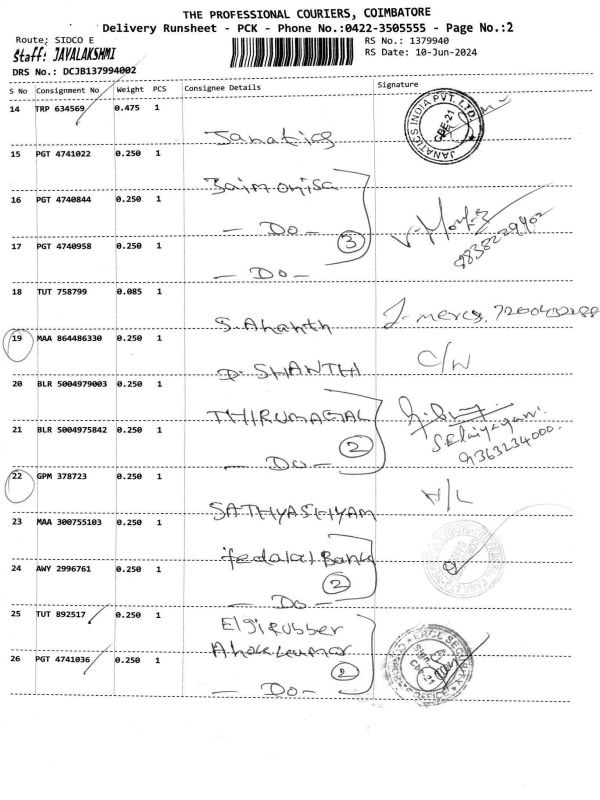 THE PROFESSIONAL COURIERS, COIMBATORE
Delivery Runsheet - PCK - Phone No.:0422-3505555 - Page No.:2
Route: SIDCO E
RS No.: 1379940
Staff: JAYALAKSHMI
RS Date: 10-Jun-2024
DRS No.: DCJB137994002
S No Consignment No Weight PCS Consignee Details Signature
14 TRP 634569 0.475 1
Janatics
JANATICS INDIA PVT. LTD. CBE-21
15 PGT 4741022 0.250 1
16 PGT 4740844 0.250 1
- Do -
3
17 PGT 4740958 0.250 1
- Do -
18 TUT 758799 0.085 1
S. Ananth
19 MAA 864486330 0.250 1
D. SHANTH
20 BLR 5004979003 0.250 1
THIRUMAGAL
21 BLR 5004975842 0.250 1
2
9363234000
- Do -
22 GPM 378723 0.250 1
SATHYASHYAM
23 MAA 300755103 0.250 1
fedalal Bank
24 AWY 2996761 0.250 1
2
- Do -
25 TUT 892517 0.250 1
Elgi Rubber
26 PGT 4741036 0.250 1
2
- Do -